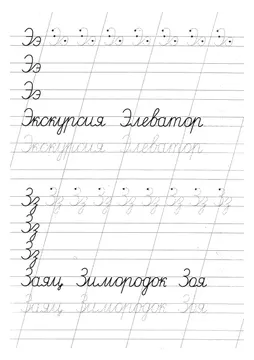 Ээ Ээ Ээ Ээ Ээ Ээ Ээ Ээ
Ээ
Ээ
Экскурсия Элеватор
Экскурсия Элеватор
Зз Зз Зз Зз Зз Зз Зз Зз Зз
Зз
Зз
Заяц Зимородок Зоя
Заяц Зимородок Зоя